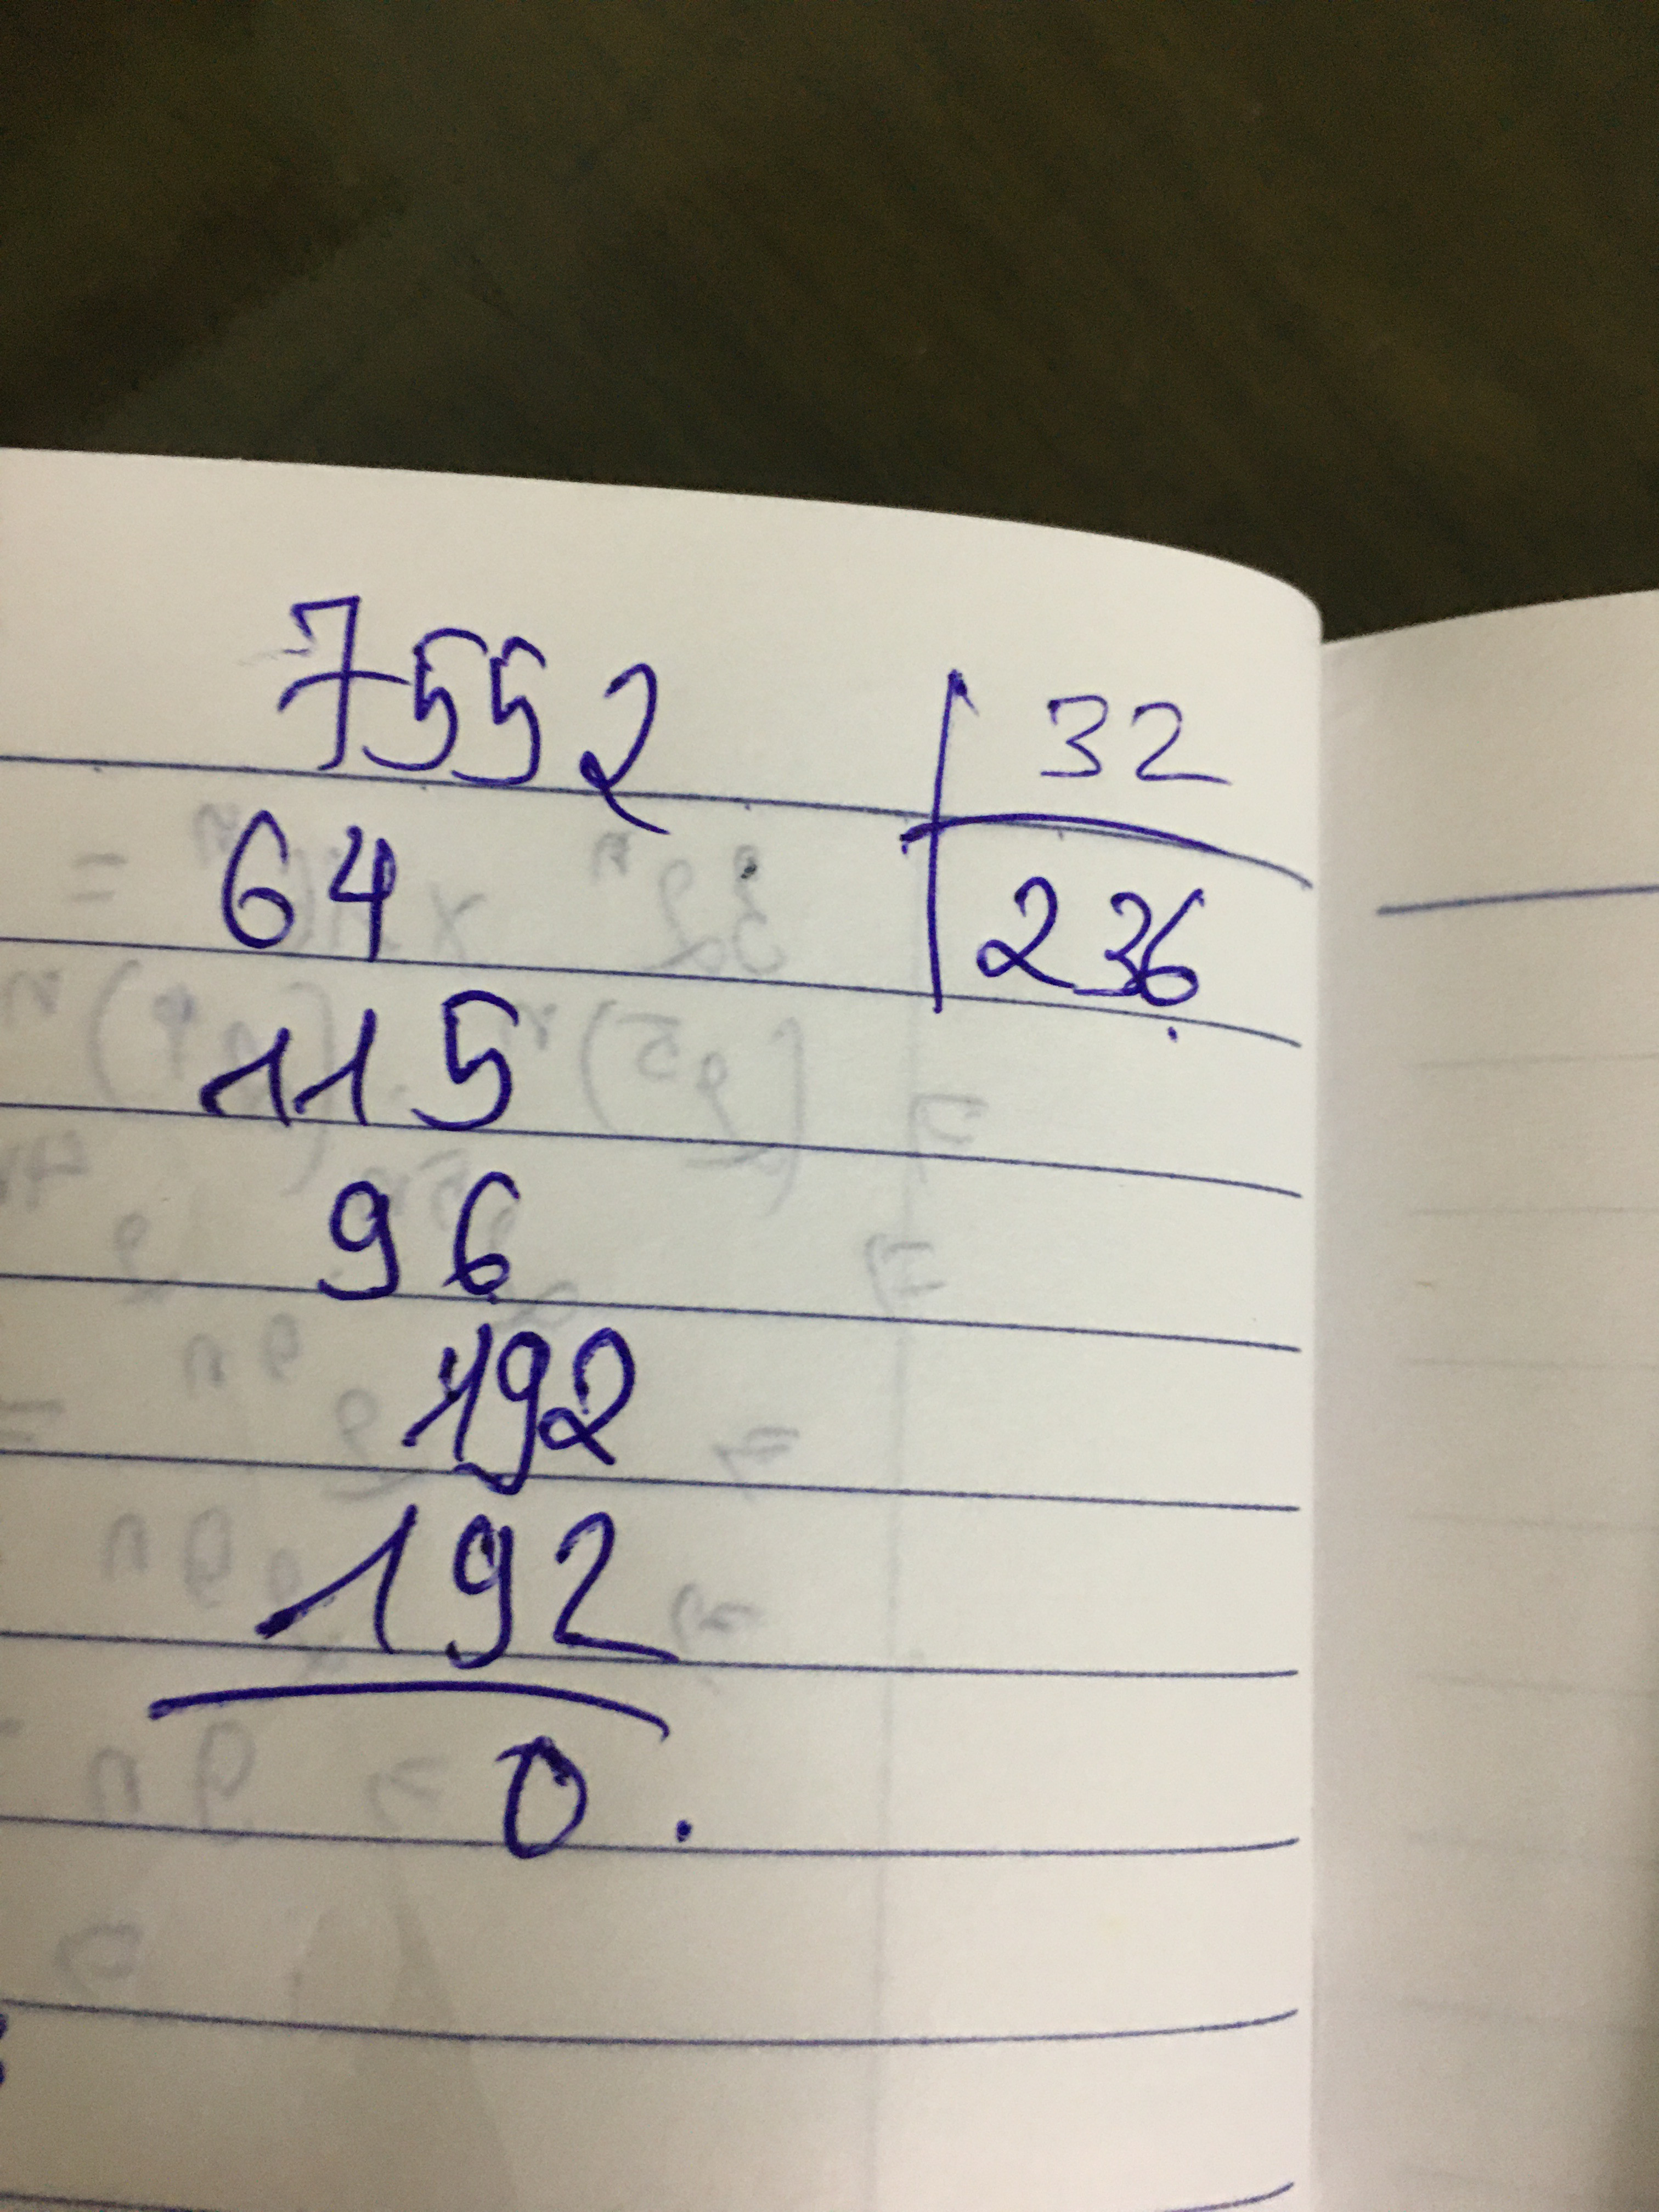 7552 32
64 236
115
96
192
192
0.